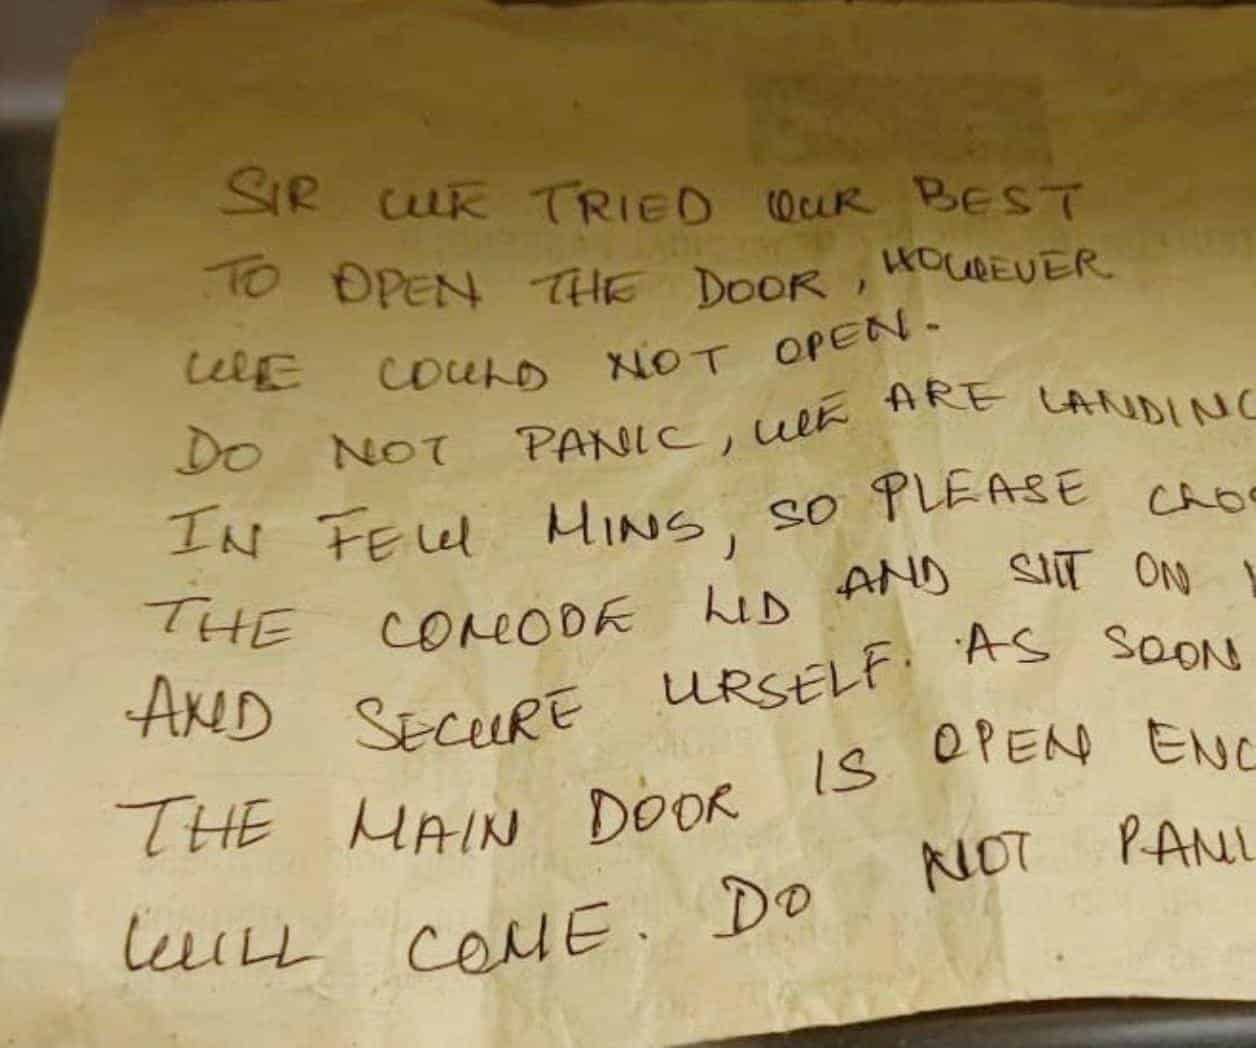 SIR WE TRIED OUR BEST
TO OPEN THE DOOR, HOWEVER
WE COULD NOT OPEN.
DO NOT PANIC, WE ARE LANDING
IN FEW MINS, SO PLEASE CLOS
THE COMODE LID AND SIT ON
AND SECURE URSELF. AS SOON
THE MAIN DOOR IS OPEN ENG
WILL COME. DO NOT PANIC